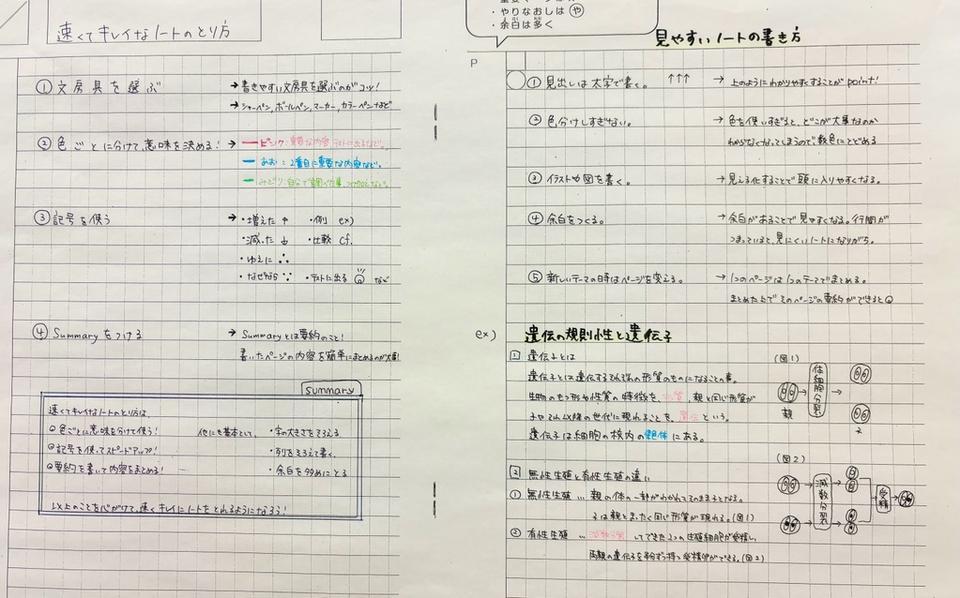 速くてキレイなノートのとり方
①文房具を選ぶ
→書きやすい文房具を選ぶのがコツ!
→シャーペン,ボールペン,マーカー,カラーペンなど
②色ごとに分けて意味を決める!
→ーピンク:重要な内容 テストに出るなど。
ーあお:2番目に重要な内容など。
ーみどり:自分で調べた事
③記号を使う
→・増えた↑ ・例 ex)
・減った↓ ・比較 cf.
・ゆえに∴
・なぜなら∵ ・テストに出る など
④Summaryをつける
→Summaryとは要約のこと!
書いたページの内容を簡単にまとめるのが大事!
summary
速くてキレイなノートのとり方は、
◎色ごとに意味を分けて使う!
◎記号を使ってスピードアップ!
◎要約を書いて内容をまとめる!
他にも基本として、
・字の大きさをそろえる
・列をそろえて書く、
・余白を多めにとる
以上のことを心がけて、速くキレイにノートをとれるようになろう!
・やりなおしは や
・余白は多く
見やすいノートの書き方
P
①見出しは太字で書く。 ↑↑↑
→上のようにわかりやすくすることがpoint!
②色分けしすぎない。
→色を使いすぎると、どこが大事なのか
わからなくなってしまうので、数色にとどめる
③イラストや図を書く。
→見える化することで頭に入りやすくなる。
④余白をつくる。
→余白があることで見やすくなる。行間が
つまっていると、見にくいノートになりがち。
⑤新しいテーマの時はページを変える。
→1つのページは1つのテーマでまとめる。
まとめた上でそのページの要約ができると◎
ex)
遺伝の規則性と遺伝子
1 遺伝子とは
遺伝子とは遺伝するそれぞれの形質のもとになることの事。
生物のもつ形や性質の特徴を、形質、親と同じ形質が
子やそれ以後の世代に現れることを、遺伝という。
遺伝子は細胞の核内の染色体にある。
2 無性生殖と有性生殖の違い
①無性生殖…親の体の一部がわかれてそのまま子となる。
子は親とまったく同じ形質が現れる。(図1)
②有性生殖…減数分裂してできた2つの生殖細胞が受精し、
両親の遺伝子を半分ずつ持つ受精卵ができる。(図2)
(図1)
親
体細胞分裂
子
(図2)
減数分裂
受精